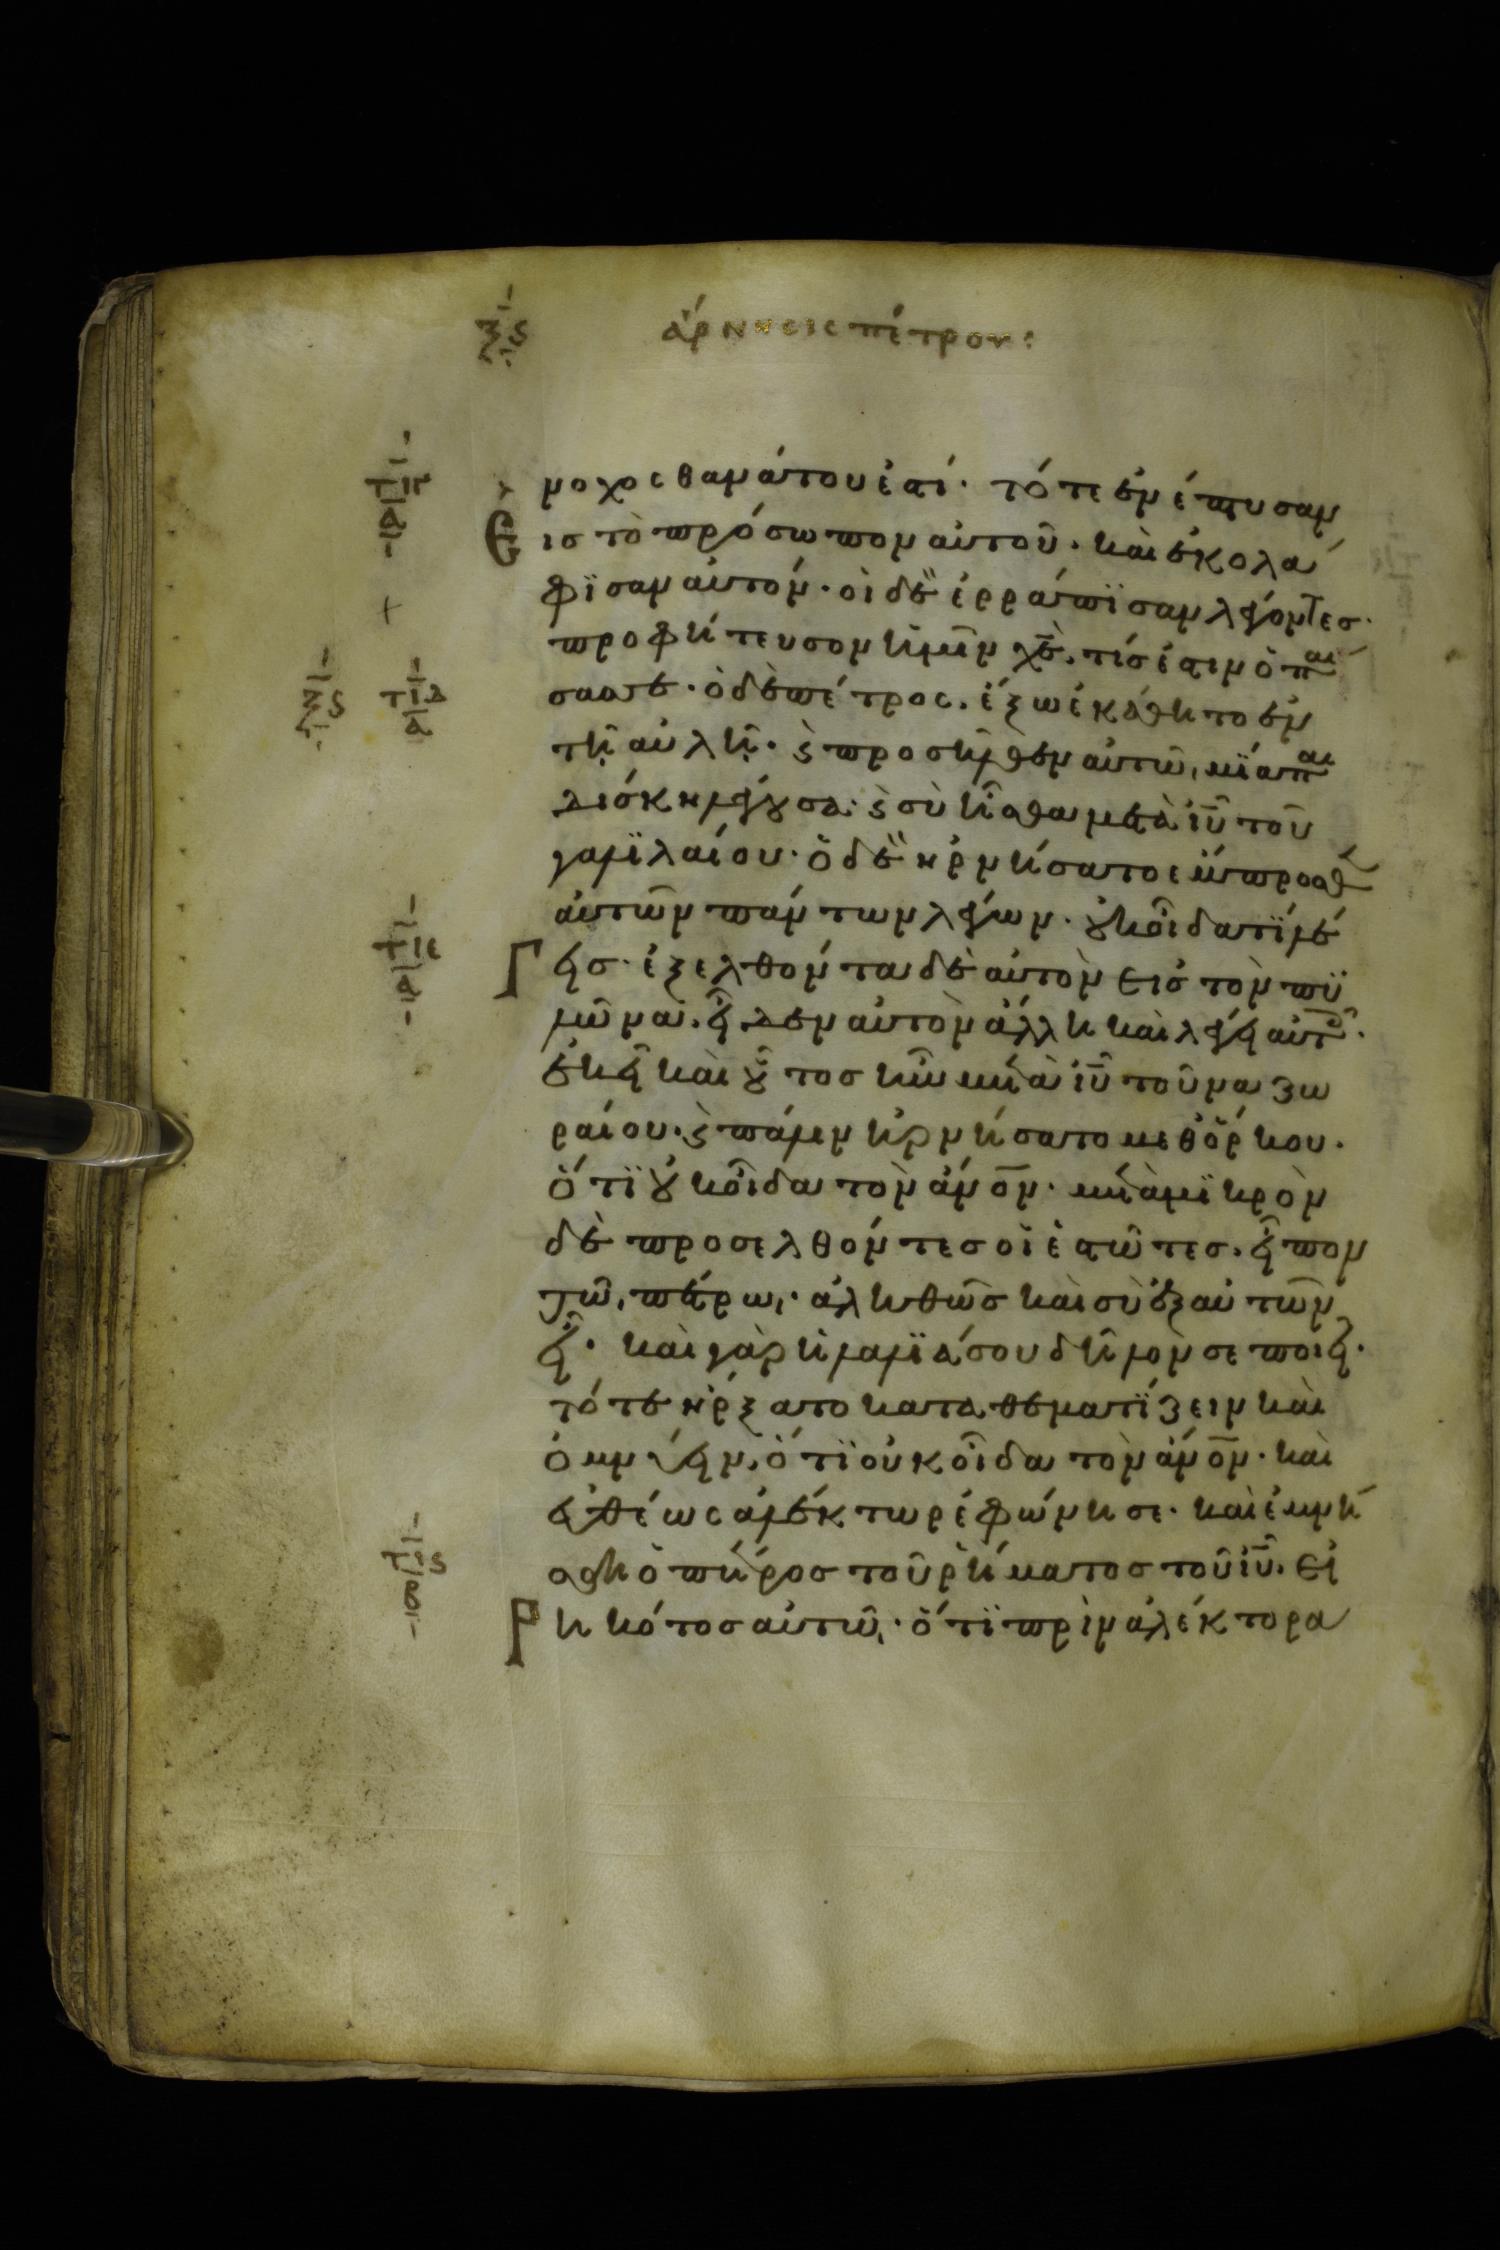 ξϛ ἀρνησις πέτρου:
τιγ
α
νοχος θανάτου ἐστί. τότε ἐνέπτυσαν
Εις τὸ πρόσωπον αὐτοῦ. καὶ ἐκολά
φϊσαν αὐτόν. οἱ δὲ ἐρράπϊσαν λέγοντες.
προφήτευσον ἡμῖν χ̅ε̅. τίς ἐστιν ὁ παί
ξϛ τιδ
α
σας σε. ὁ δὲ πέτρος. ἔξω ἐκάθητο ἐν
τῆ αὐλῆ. ϗ προσῆλθεν αὐτῶ, μία παι
δίσκη λέγουσα. ϗ σὺ ἦσθα μετὰ ι̅υ̅ τοῦ
γαλϊλαίου. ὁ δὲ ἠρνήσατο ἔμπροσθ
αὐτῶν πάντων λέγων. οὐκ οἶδα τϊ λέ
τιε
α
Γεισ. ἐξελθόντα δὲ αὐτὸν εἰσ τὸν πϋ
λῶνα. εἶδεν αὐτὸν ἄλλη καὶ λέγει αὐτ
ἐκεῖ καὶ οὗτοσ ἦν μετὰ ι̅υ̅ τοῦ ναζω
ραίου. ϗ πάλιν ἠρνήσατο μεθ ὅρκου.
ὅτϊ οὐκ οἶδα τὸν α̅ν̅ο̅ν̅. μετὰ μϊκρὸν
δὲ προσελθόντεσ οἱ ἑστῶτεσ. εἶπον
τῶ, πέτρω,. ἀληθῶσ καὶ σὺ ἐξ αὐτῶν
εἶ. καὶ γὰρ ἡ λαλϊά σου δῆλόν σε ποιεῖ.
τότε ἤρξατο καταθεματϊζειν καὶ
ὀμνύειν. ὅτϊ οὐκ οἶδα τὸν α̅ν̅ο̅ν̅. καὶ
εὐθέως ἀλέκτωρ ἐφώνησε. καὶ ἐμνή
τιϛ
β
σθη ὁ πέτροσ τοῦ ῥήματοσ τοῦ ι̅υ̅. εἰ
Ρηκότοσ αὐτῶ,. ὅτϊ πρὶν ἀλέκτορα